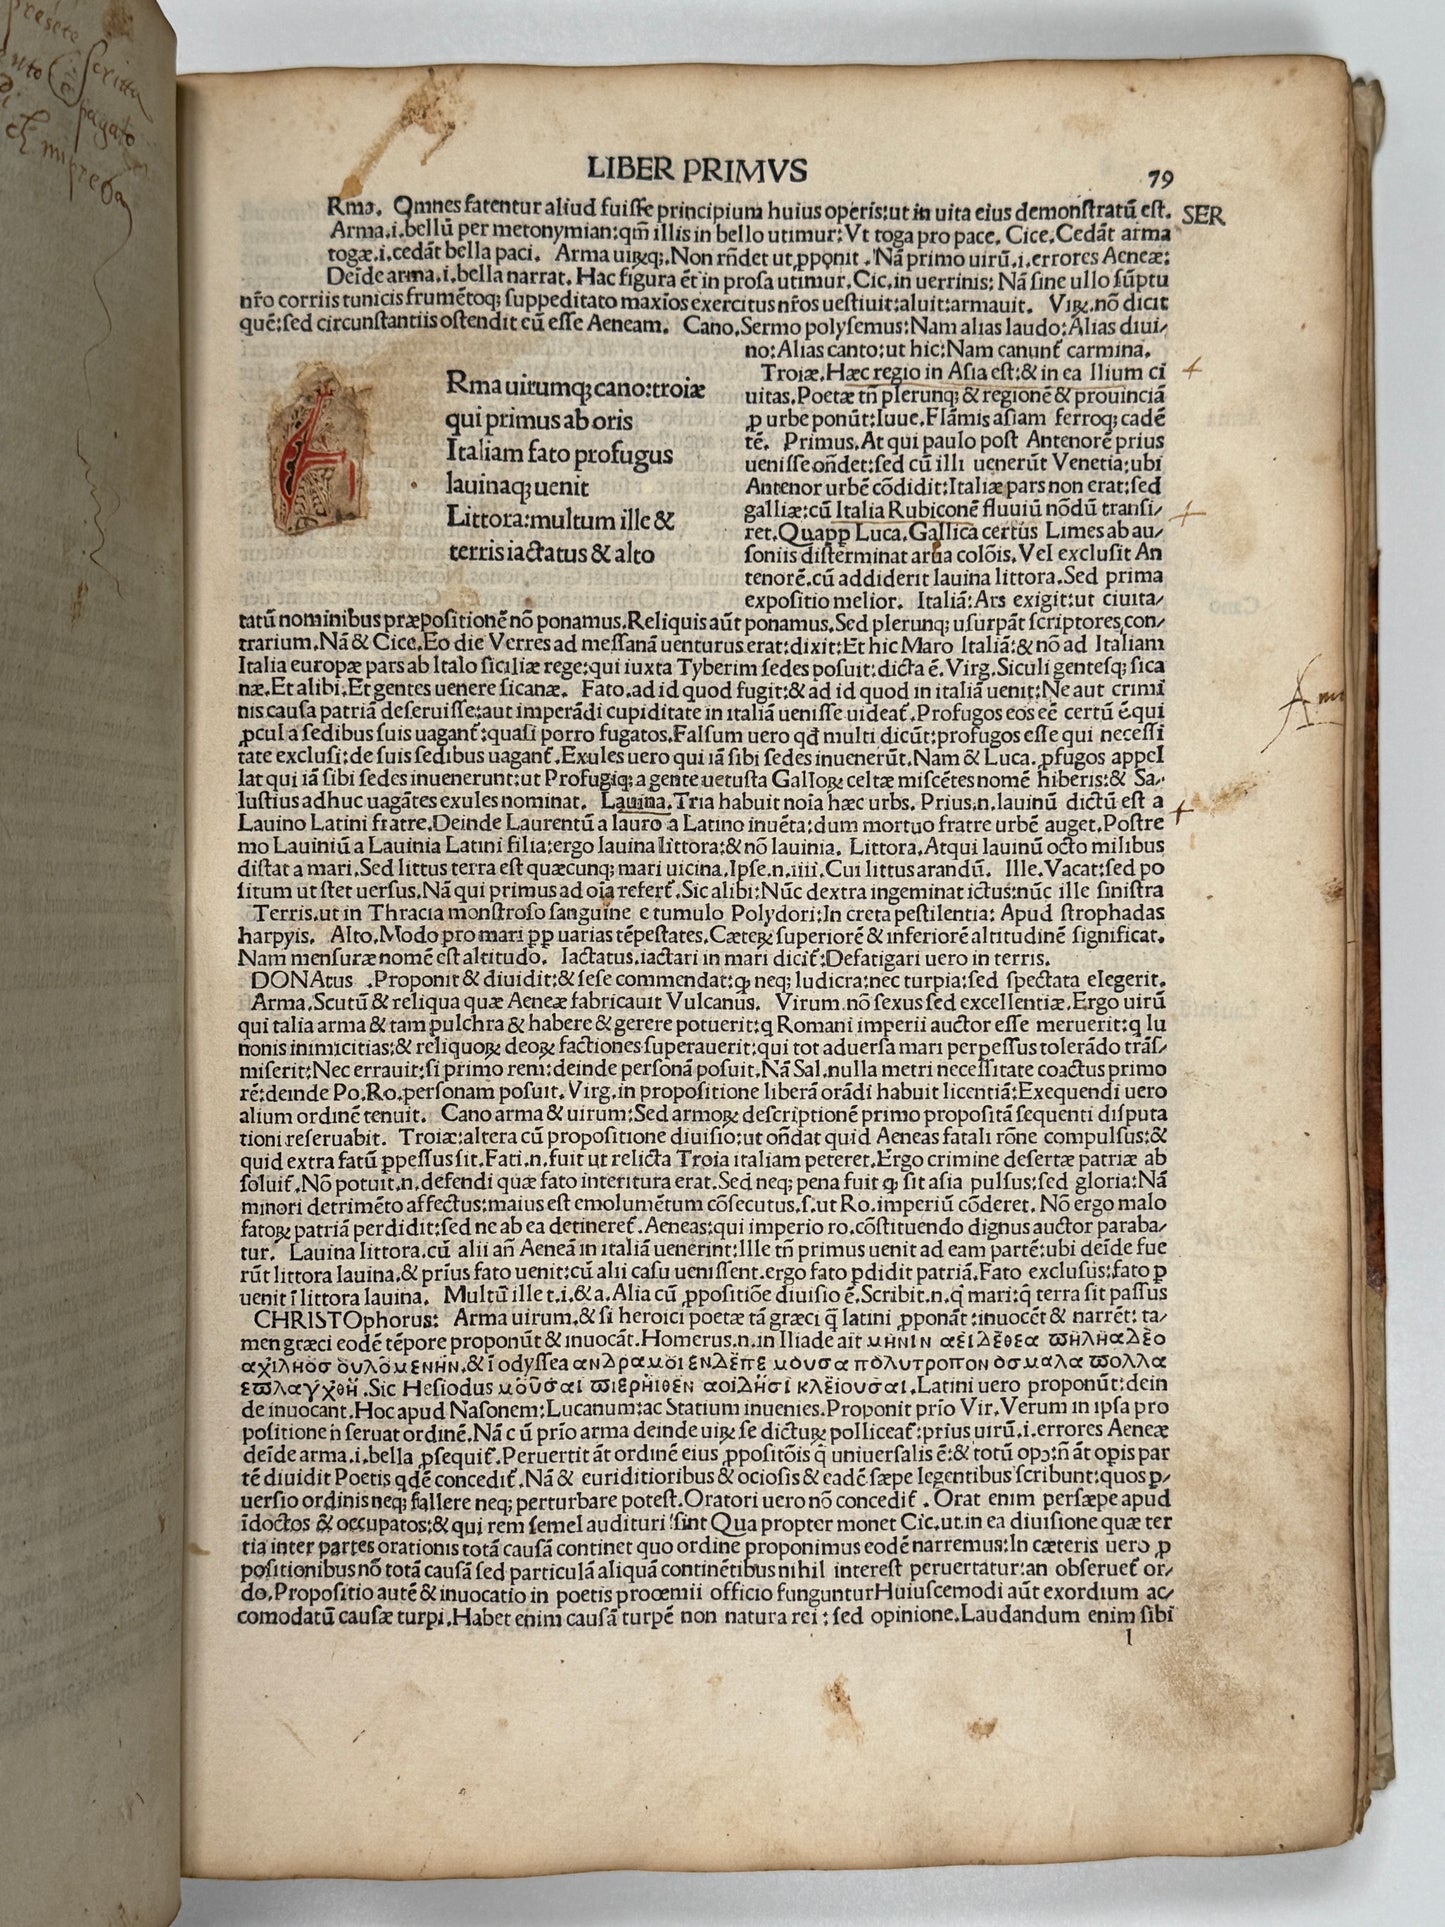 presete
Scritta
pagato
LIBER PRIMVS
79
Rma. Omnes fatentur aliud fuiſſe principium huius operis:ut in uita eius demonſtratū eſt. SER
Arma.i.bellū per metonymian:qm̄ illis in bello utimur: Vt toga pro pace. Cice. Cedāt arma
togæ.i.cedāt bella paci. Arma uirūq;. Non rn̄det ut ꝓponit. Nā primo uirū.i.errores Aeneæ:
Deīde arma.i.bella narrat. Hac figura ēt in proſa utimur. Cic. in uerrinis: Nā ſine ullo ſūptu
nr̄o corriis tunicis frumētoq; ſuppeditato maxīos exercitus nr̄os ueſtiuit:aluit:armauit. Virꝝ. nō dicit
quē:ſed circunſtantiis oſtendit eū eſſe Aeneam. Cano. Sermo polyſemus: Nam alias laudo: Alias diui-
no: Alias canto: ut hic: Nam canunt̄ carmina.
Rma uirumq; cano: troiæ
qui primus ab oris
Italiam fato profugus
lauinaq; uenit
Littora: multum ille &
terris iactatus & alto
Troiæ. Hæc regio in Aſia eſt: & in ea Ilium ci
uitas. Poetæ tn̄ plerunq; & regionē & prouinciā
ꝓ urbe ponūt: Iuue. Flāmis aſiam ferroq; cadē
tē. Primus. At qui paulo poſt Antenorē prius
ueniſſe on̄det: ſed cū illi uenerūt Venetia: ubi
Antenor urbē cōdidit: Italiæ pars non erat: ſed
galliæ: cū Italia Rubiconē fluuiū nōdū tranſi-
ret. Quapp Luca. Gallica certus Limes ab au-
ſoniis diſterminat arua colōis. Vel excluſit An
tenorē. cū addiderit lauina littora. Sed prima
expoſitio melior. Italiā: Ars exigit: ut ciuita-
tatū nominibus præpoſitionē nō ponamus. Reliquis aūt ponamus. Sed plerunq; uſurpāt ſcriptores con-
trarium. Nā & Cice. Eo die Verres ad meſſanā uenturus erat: dixit: Et hic Maro Italiā: & nō ad Italiam
Italia europæ pars ab Italo ſiciliæ rege: qui iuxta Tyberim ſedes poſuit: dicta ē. Virg. Siculi genteſq; ſica
næ. Et alibi. Et gentes uenere ſicanæ. Fato. ad id quod fugit: & ad id quod in italiā uenit: Ne aut crimi
nis cauſa patriā deſeruiſſe: aut imperādi cupiditate in italiā ueniſſe uideat̄. Profugos eos eē certū ē. qui
ꝓcul a ſedibus ſuis uagant̄: quaſi porro fugatos. Falſum uero qđ multi dicūt: profugos eſſe qui neceſſi
tate excluſi: de ſuis ſedibus uagant̄. Exules uero qui iā ſibi ſedes inuenerūt. Nam & Luca. ꝓfugos appel
lat qui iā ſibi ſedes inuenerunt: ut Profugiq; a gente uetuſta Galloꝝ celtæ miſcētes nomē hiberis: & Sa-
luſtius adhuc uagātes exules nominat. Lauina. Tria habuit noīa hæc urbs. Prius. n. lauinū dictū eſt a
Lauino Latini fratre. Deinde Laurentū a lauro a Latino inuēta: dum mortuo fratre urbē auget. Poſtre
mo Lauiniū a Lauinia Latini filia: ergo lauina littora: & nō lauinia. Littora. Atqui lauinū octo milibus
diſtat a mari. Sed littus terra eſt quæcunq; mari uicina. Ipſe. n. iiii. Cui littus arandū. Ille. Vacat: ſed po
ſitum ut ſtet uerſus. Nā qui primus ad oīa refert̄. Sic alibi: Nūc dextra ingeminat ictus: nūc ille ſiniſtra
Terris. ut in Thracia monſtroſo ſanguine e tumulo Polydori: In creta peſtilentia: Apud ſtrophadas
harpyis. Alto. Modo pro mari ꝓp uarias tēpeſtates. Cæteꝝ ſuperiorē & inferiorē altitudinē ſignificat.
Nam menſuræ nomē eſt altitudo. Iactatus. iactari in mari dicit̄: Defatigari uero in terris.
DONAtus. Proponit & diuidit: & ſeſe commendat: ꝙ neq; ludicra: nec turpia: ſed ſpectata elegerit.
Arma. Scutū & reliqua quæ Aeneæ fabricauit Vulcanus. Virum. nō ſexus ſed excellentiæ. Ergo uirū
qui talia arma & tam pulchra & habere & gerere potuerit: q Romani imperii auctor eſſe meruerit: q Iu
nonis inimicitias: & reliquoꝝ deoꝝ factiones ſuperauerit: qui tot aduerſa mari perpeſſus tolerādo trāſ-
miſerit: Nec errauit: ſi primo rem: deinde perſonā poſuit. Nā Sal. nulla metri neceſſitate coactus primo
rē: deinde Po. Ro. perſonam poſuit. Virg. in propoſitione liberā orādi habuit licentiā: Exequendi uero
alium ordinē tenuit. Cano arma & uirum: Sed armoꝝ deſcriptionē primo propoſitā ſequenti diſputa
tioni reſeruabit. Troiæ: altera cū propoſitione diuiſio: ut on̄dat quid Aeneas fatali rōne compulſus: &
quid extra fatū ꝓpeſſus ſit. Fati. n. fuit ut relicta Troia italiam peteret. Ergo crimine deſertæ patriæ ab
ſoluit̄. Nō potuit. n. defendi quæ fato interitura erat. Sed neq; pena fuit ꝙ ſit aſia pulſus: ſed gloria: Nā
minori detrimēto affectus: maius eſt emolumētum cōſecutus. ſ. ut Ro. imperiū cōderet. Nō ergo malo
fatoꝝ patriā perdidit: ſed ne ab ea detineret̄. Aeneas: qui imperio ro. cōſtituendo dignus auctor paraba-
tur. Lauina littora. cū alii an̄ Aeneā in italiā uenerint: Ille tn̄ primus uenit ad eam partē: ubi deīde fue
rūt littora lauina. & prīus fato uenit: cū alii caſu ueniſſent. ergo fato ꝑdidit patriā. Fato excluſus: fato ꝑ
uenit ī littora lauina. Multū ille t. i. & a. Alia cū ꝓpoſitiōe diuiſio ē. Scribit. n. q̄ mari: q̄ terra ſit paſſus
CHRISTOphorus: Arma uirum. & ſi heroici poetæ tā græci q̄ latini ꝓponāt: inuocēt & narrēt: ta-
men græci eodē tēpore proponūt & inuocāt. Homerus. n. in Iliade ait μηνιν αειδεθεα πηληαδεο
αχιληοσ ουλομενην. & ī odyſſea ανδραμοι εννεπε μουσα πολυτροπον οσμαλα πολλα
επλαγχθη. Sic Heſiodus μουσαι πιεριηθεν αοιδησι κλειουσαι. Latini uero proponūt: dein
de inuocant. Hoc apud Naſonem: Lucanum: ac Statium inuenies. Proponit prīo Vir. Verum in ipſa pro
poſitione n̄ ſeruat ordinē. Nā cū prīo arma deinde uiꝝ ſe dictuꝝ polliceat̄: prius uirū. i. errores Aeneæ
deīde arma. i. bella ꝓſequit̄. Peruertit āt ordinē eius ꝓpoſitōis q̄ uniuerſalis ē: & totū opꝰ: n̄ āt opis par
tē diuidit Poetis qđē concedit̄. Nā & euriditioribus & ocioſis & eadē ſæpe legentibus ſcribunt: quos ꝑ-
uerſio ordinis neq; fallere neq; perturbare poteſt. Oratori uero nō concedit̄. Orat enim perſæpe apud
īdoctos & occupatos: & qui rem ſemel audituri ſint Qua propter monet Cic. ut in ea diuiſione quæ ter
tia inter partes orationis totā cauſā continet quo ordine proponimus eodē narremus: In cæteris uero ꝓ
poſitionibus nō totā cauſā ſed particulā aliquā continētibus nihil intereſt peruertatur: an obſeruet̄ or-
do. Propoſitio autē & inuocatio in poetis prooemii officio funguntur Huiuſcemodi aūt exordium ac-
comodatū cauſæ turpi. Habet enim cauſā turpē non natura rei: ſed opinione. Laudandum enim ſibi
l